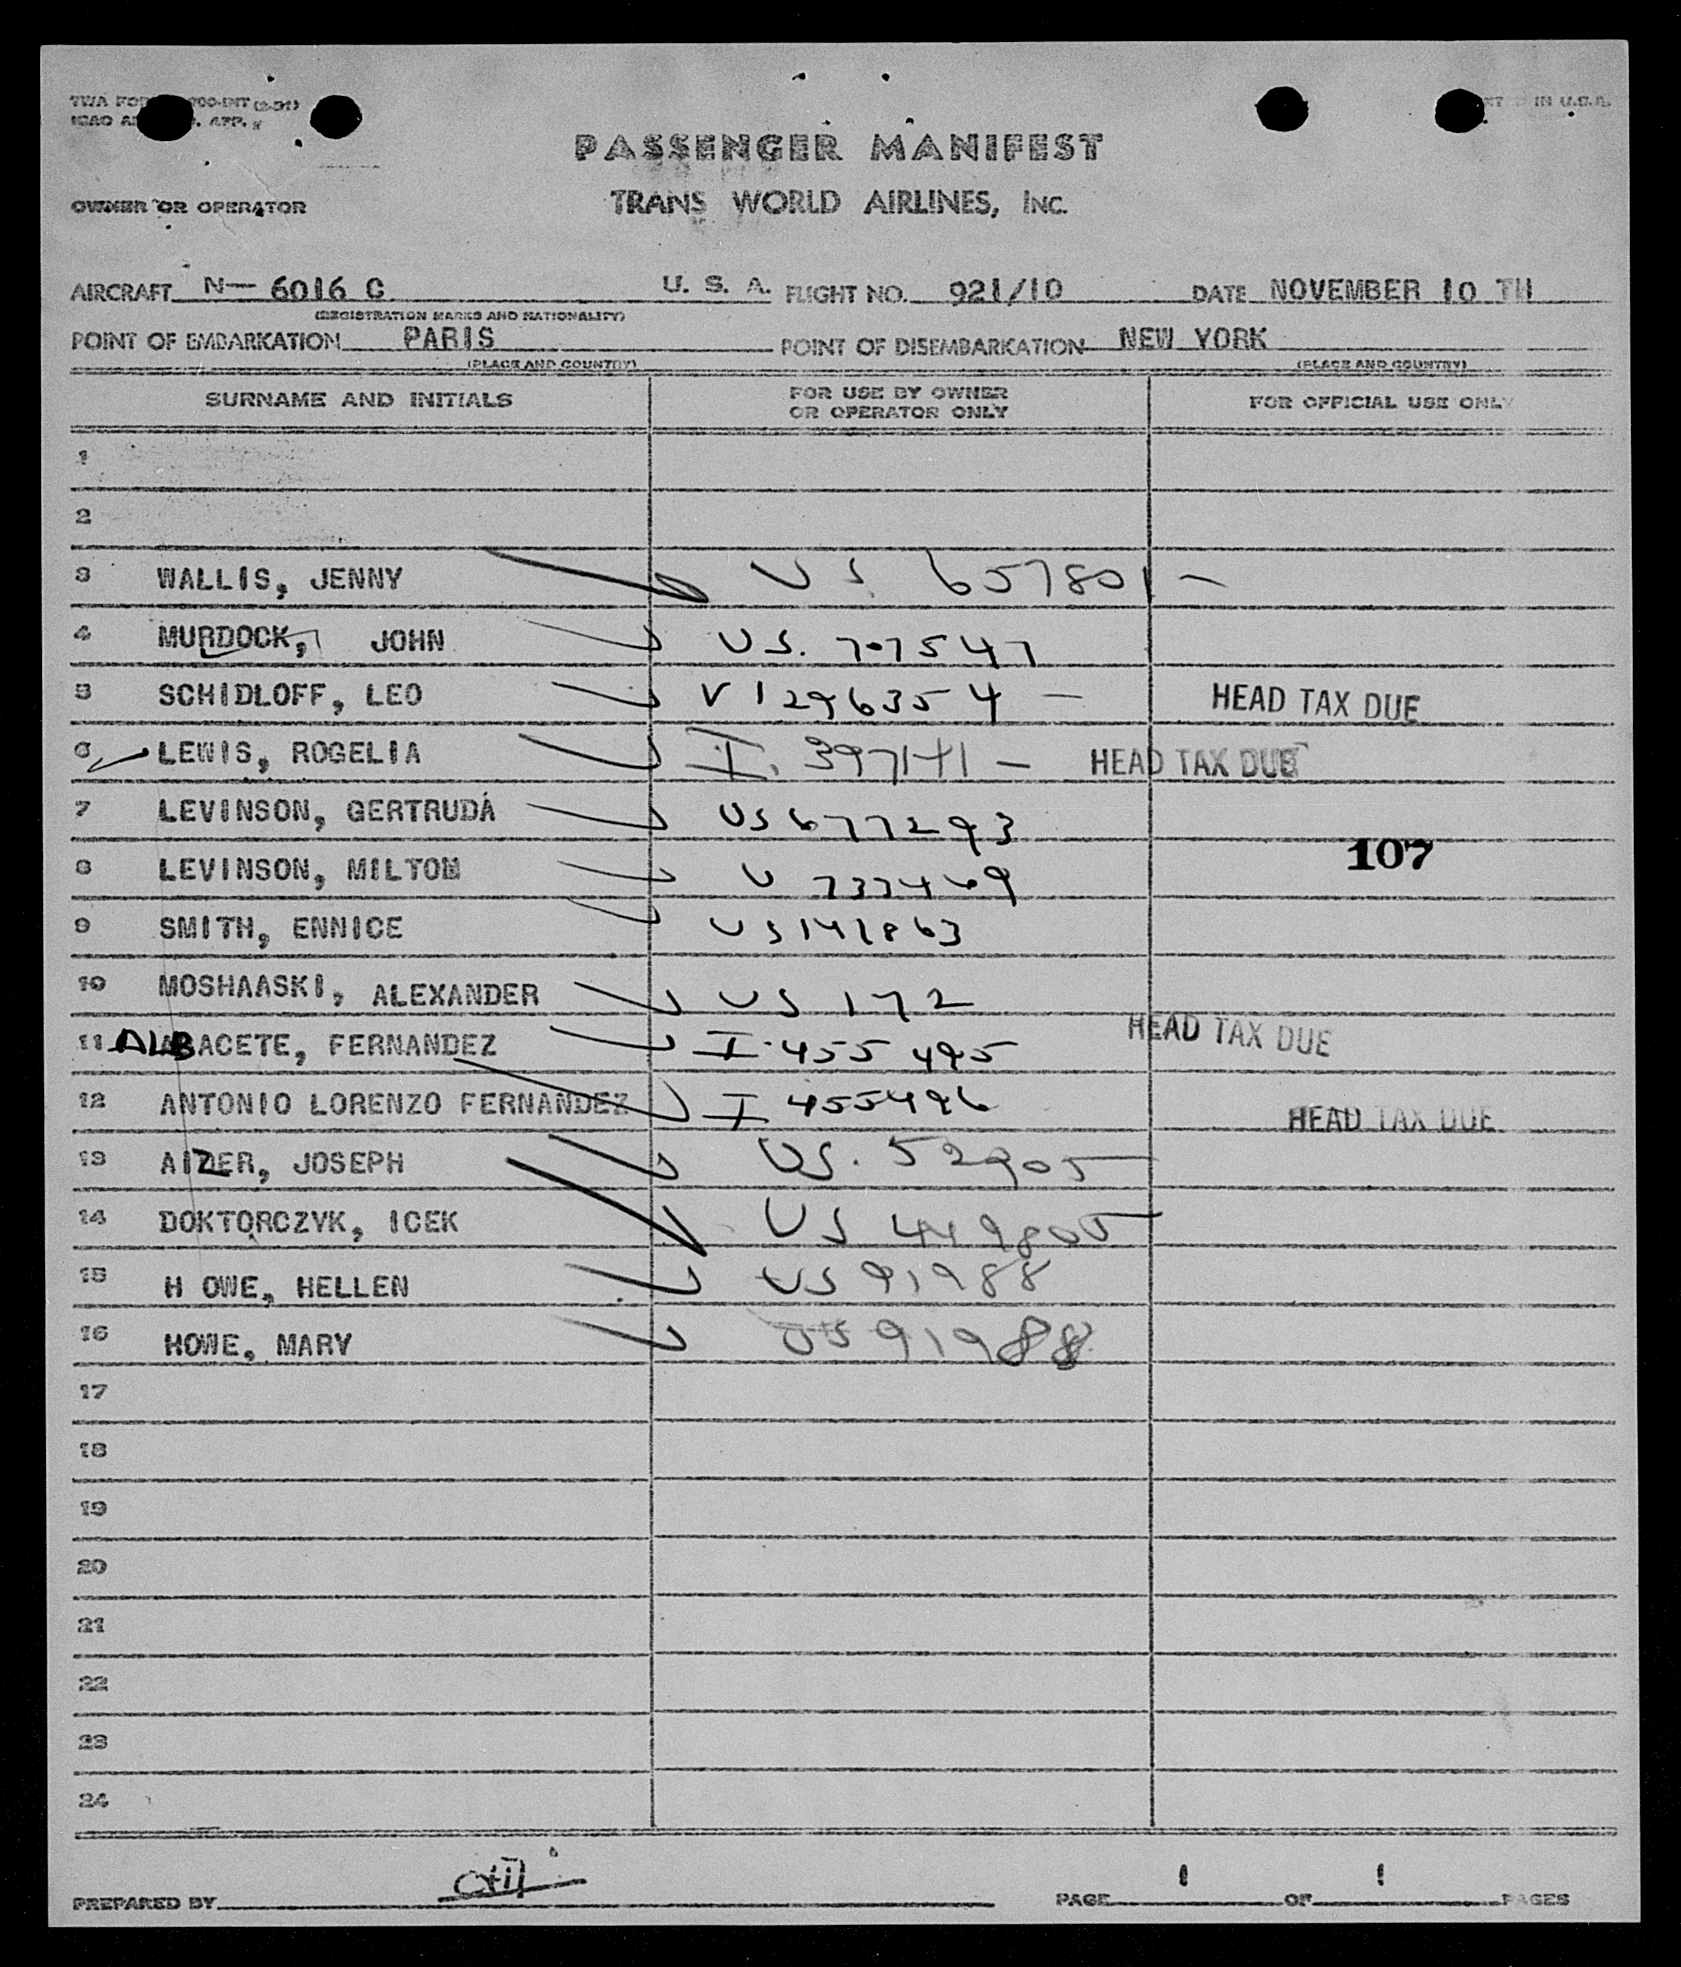 TWA FOR 900-INT (2-51)
ICAO AN 9. APP.
IN U.S.A.
PASSENGER MANIFEST
OWNER OR OPERATOR TRANS WORLD AIRLINES, INC.
AIRCRAFT N— 6016 C U. S. A. FLIGHT NO. 921/10 DATE NOVEMBER 10 TH
(REGISTRATION MARKS AND NATIONALITY)
POINT OF EMBARKATION PARIS POINT OF DISEMBARKATION NEW YORK
(PLACE AND COUNTRY) (PLACE AND COUNTRY)
SURNAME AND INITIALS FOR USE BY OWNER OR OPERATOR ONLY FOR OFFICIAL USE ONLY
1
2
3 WALLIS, JENNY US 657801 -
4 MURDOCK, JOHN US. 707547
5 SCHIDLOFF, LEO V 1296354 - HEAD TAX DUE
6 LEWIS, ROGELIA I. 397141 - HEAD TAX DUE
7 LEVINSON, GERTRUDA US 677293
107
8 LEVINSON, MILTON U 737469
9 SMITH, ENNICE US 141863
10 MOSHAASKI, ALEXANDER US 172
11 ALBACETE, FERNANDEZ I 455495 HEAD TAX DUE
12 ANTONIO LORENZO FERNANDEZ I 455496 HEAD TAX DUE
13 AIZER, JOSEPH US. 52905
14 DOKTORCZYK, ICEK US 449805
15 H OWE, HELLEN US 91988
16 HOWE, MARY US 91988
17
18
19
20
21
22
23
24
PREPARED BY PAGE 1 OF 1 PAGES